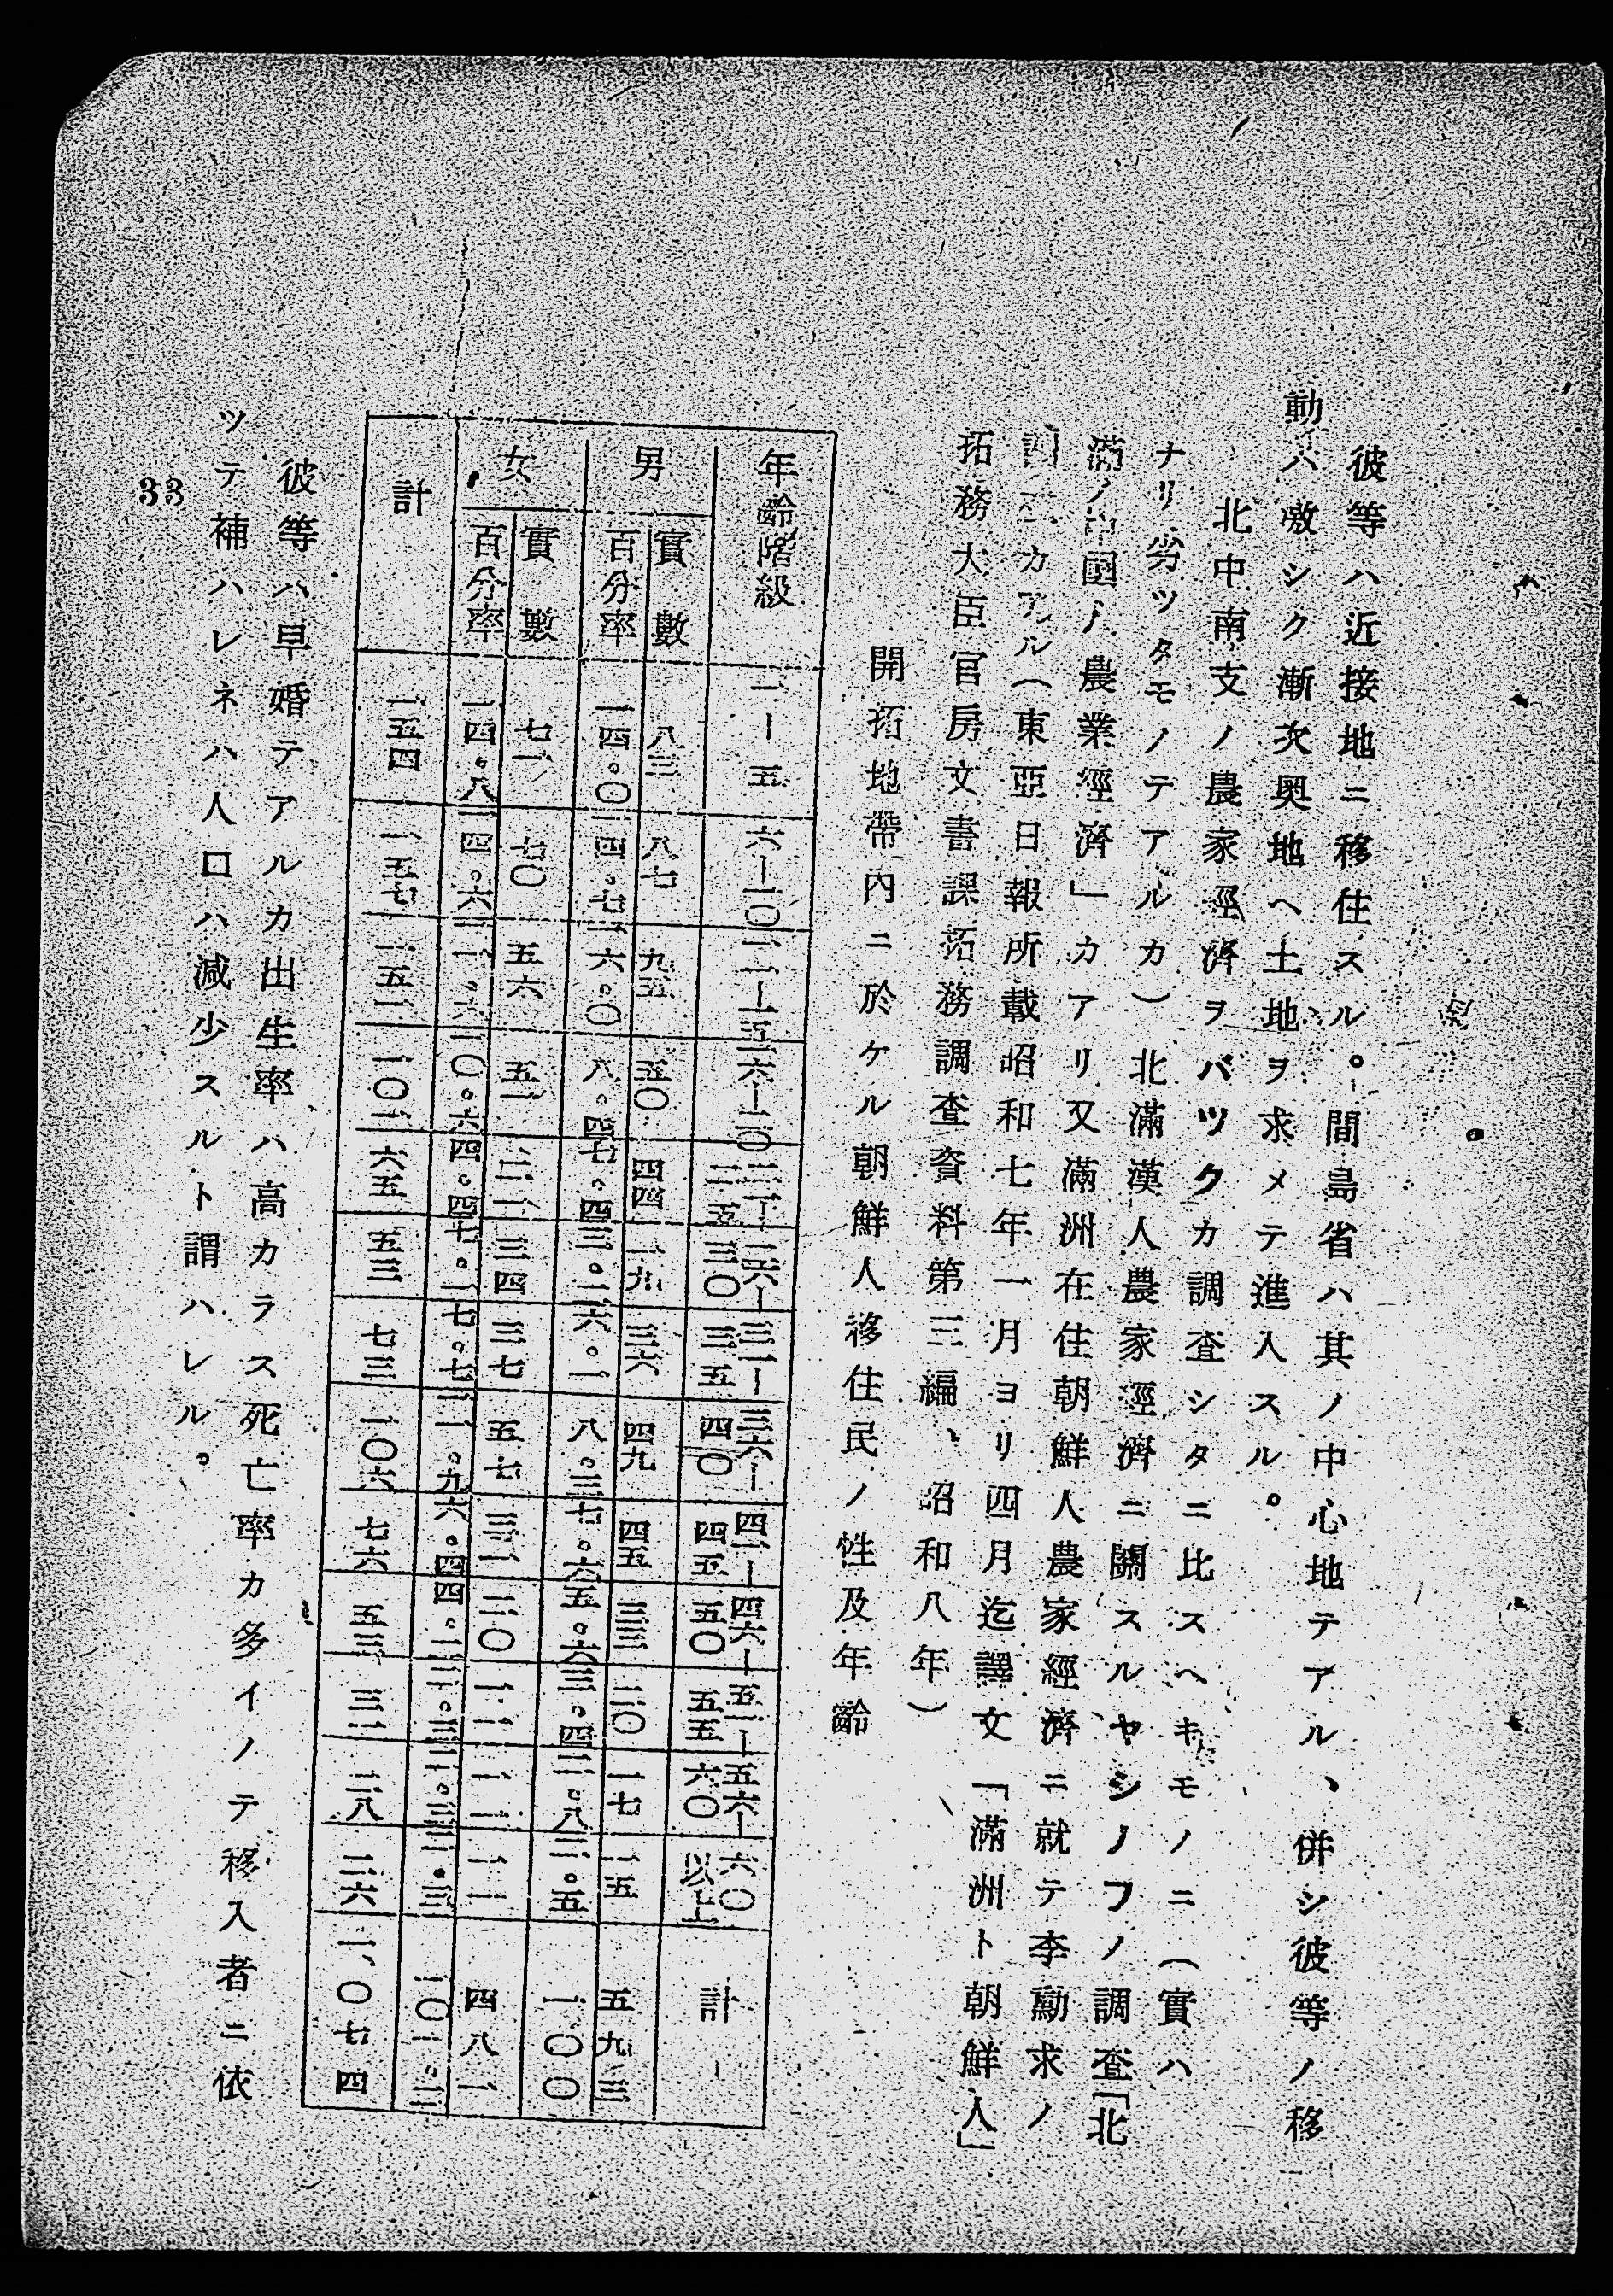 彼等ハ近接地ニ移住スル。間島省ハ其ノ中心地テアル、併シ彼等ノ移
動ハ激シク漸次奥地ヘ土地ヲ求メテ進入スル。
北中南支ノ農家經濟ヲバツクカ調査シタニ比スヘキモノニ(實ハ
ナリ劣ツタモノテアルカ)北滿漢人農家經濟ニ關スルヤシノフノ調査「北
滿ノ中國人農業經濟」カアリ又滿洲在住朝鮮人農家經濟ニ就テ李勳求ノ
調査カアル(東亞日報所載昭和七年一月ヨリ四月迄譯文「滿洲ト朝鮮人」
拓務大臣官房文書課拓務調査資料第三編、昭和八年)
開拓地帶內ニ於ケル朝鮮人移住民ノ性及年齡
年齡階級 一ー五 六ー一〇 一一ー一五 一六ー二〇 二一ー二五 二六ー三〇 三一ー三五 三六ー四〇 四一ー四五 四六ー五〇 五一ー五五 五六ー六〇 六〇以上 計
男 實數 八三 八七 九五 五〇 四四 一九 三六 四九 四五 三三 二〇 一七 一五 五九三
百分率 一四。〇 一四。七 一六。〇 八。四 七。四 三。二 六。一 八。三 七。六 五。六 三。四 二。八 二。五 一〇〇
女 實數 七一 七〇 五六 五一 二一 三四 三七 五七 三一 二〇 一一 一一 一一 四八一
百分率 一四。八 一四。六 一一。六 一〇。六 四。四 七。一 七。七 一一。九 六。四 四。二 二。三 二。三 二。三 一〇一。二
計 一五四 一五七 一五一 一〇一 六五 五三 七三 一〇六 七六 五三 三一 二八 二六 一、〇七四
彼等ハ早婚テアルカ出生率ハ高カラス死亡率カ多イノテ移入者ニ依
ツテ補ハレネハ人口ハ減少スルト謂ハレル。
33